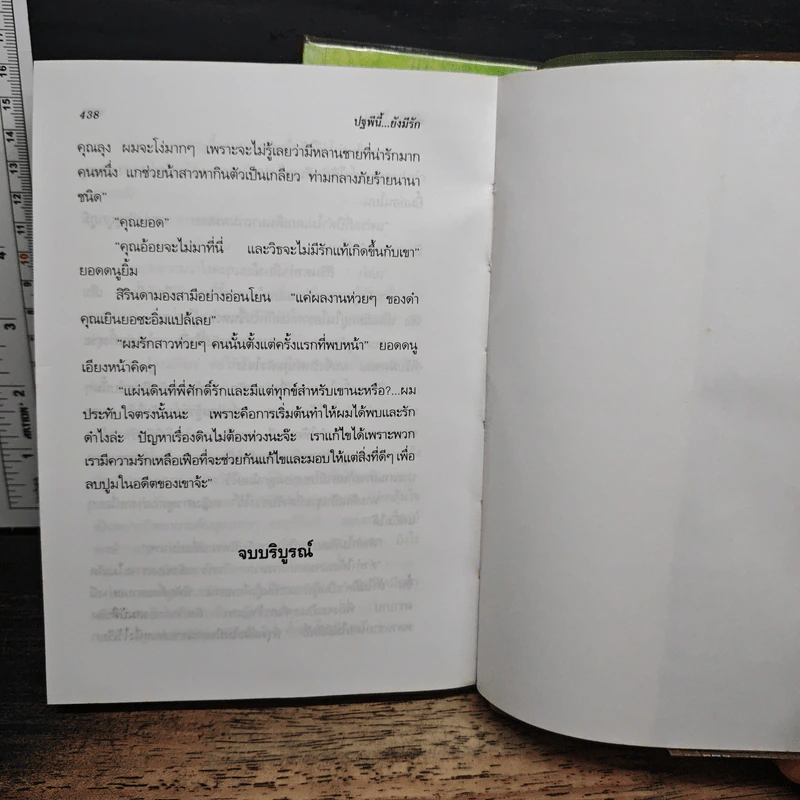 438
ปฐพีนี้...ยังมีรัก
คุณลุง ผมจะโง่มากๆ เพราะจะไม่รู้เลยว่ามีหลานชายที่น่ารักมาก
คนหนึ่ง แกช่วยน้าสาวหากินตัวเป็นเกลียว ท่ามกลางภัยร้ายนานา
ชนิด”
“คุณยอด”
“คุณอ้อยจะไม่มาที่นี่ และวิธจะไม่มีรักแท้เกิดขึ้นกับเขา”
ยอดดนูยิ้ม
สิรินดามองสามีอย่างอ่อนโยน “แค่ผลงานห่วยๆ ของดำ
คุณเยินยอซะอิ่มแปล้เลย”
“ผมรักสาวห่วยๆ คนนั้นตั้งแต่ครั้งแรกที่พบหน้า” ยอดดนู
เอียงหน้าคิดๆ
“แผ่นดินที่พี่ศักดิ์รักและมีแต่ทุกข์สำหรับเขานะหรือ?...ผม
ประทับใจตรงนั้นนะ เพราะคือการเริ่มต้นทำให้ผมได้พบและรัก
ดำไงล่ะ ปัญหาเรื่องดินไม่ต้องห่วงนะจ๊ะ เราแก้ไขได้เพราะพวก
เรามีความรักเหลือเฟือที่จะช่วยกันแก้ไขและมอบให้แต่สิ่งที่ดีๆ เพื่อ
ลบปูมในอดีตของเขาจ้ะ”
จบบริบูรณ์
17
16
15
14
13
12
11
10
4
3
2
1